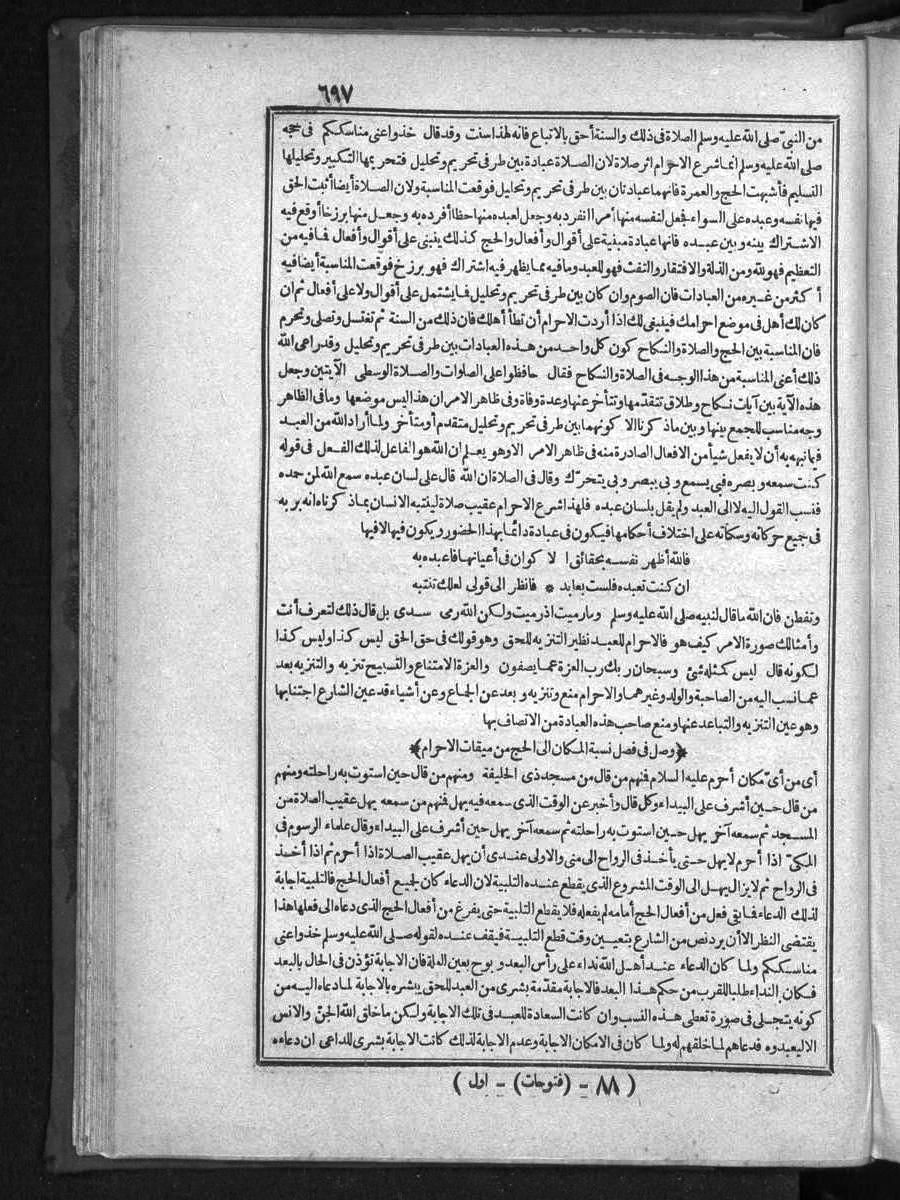 ٦٩٧
من النبيّ صلى الله عليه وسلم الصلاة فى ذلك والسنة أحق بالاتباع فانه لهذا سنت وقد قال خذوا عنى مناسككم فى حجه
صلى الله عليه وسلم انما شرع الاحرام اثر صلاة لان الصلاة عبادة بين طرفى تحريم وتحليل فتحريمها التكبير وتحليلها
التسليم فأشبهت الحج والعمرة فانهما عبادتان بين طرفى تحريم وتحليل فوقعت المناسبة ولان الصلاة أيضا أثبت الحق
فيها نفسه وعبده على السواء فجعل لنفسه منها أمرا انفرد به وجعل لعبده منها حظا أفرده به وجعل منها برزخا أوقع فيه
الاشتراك بينه وبين عبده فانها عبادة مبنية على أقوال وأفعال والحج كذلك ينبنى على أقوال وأفعال فما فيه من
التعظيم فهو لله ومن الذلة والافتقار والتفث فهو للعبد وما فيه مما يظهر فيه اشتراك فهو برزخ فوقعت المناسبة أيضا فيه
أكثر من غيره من العبادات فان الصوم وان كان بين طرفى تحريم وتحليل فما يشتمل على أقوال ولا على أفعال ثم ان
كان لك أهل فى موضع احرامك فينبغى لك اذا أردت الاحرام أن تطأ أهلك فان ذلك من السنة ثم تغتسل وتصلى وتحرم
فان المناسبة بين الحج والصلاة والنكاح كون كل واحد من هذه العبادات بين طرفى تحريم وتحليل وقد راعى الله
ذلك أعنى المناسبة من هذا الوجه فى الصلاة والنكاح فقال حافظوا على الصلوات والصلاة الوسطى الآيتين وجعل
هذه الآية بين آيات نكاح وطلاق تتقدّمها وتتأخر عنها وعدة وفاة وفى ظاهر الامر ان هذا ليس موضعها وما فى الظاهر
وجه مناسب للجمع بينها وبين ما ذكرنا الا كونهما بين طرفى تحريم وتحليل متقدم أو متأخر ولما أراد الله من العبد
فيما نبهه به أن لا يفعل شيأ من الافعال الصادرة منه فى ظاهر الامر الا وهو يعلم ان الله هو الفاعل لذلك الفعل فى قوله
كنت سمعه وبصره فبى يسمع وبى يبصر وبى يتحرّك وقال فى الصلاة ان الله قال على لسان عبده سمع الله لمن حمده
فنسب القول اليه لا الى العبد ولم يقل بلسان عبده فلهذا شرع الاحرام عقيب صلاة لينتبه الانسان بما ذكرناه انه بربه
فى جميع حركاته وسكناته على اختلاف أحكامها فيكون فى عبادة دائما بهذا الحضور ويكون فيها لا فيها
فالله أظهر نفسه بحقائق ا لا كوان فى أعيانها فاعبده به
ان كنت تعبده فلست بعابد * فانظر الى قولى لعلك تنتبه
وتفطن فان الله ما قال لنبيه صلى الله عليه وسلم وما رميت اذ رميت ولكن الله رمى سدى بل قال ذلك لتعرف أنت
وأمثالك صورة الامر كيف هو فالاحرام للعبد نظير التنزيه للحق وهو قولك فى حق الحق ليس كذا وليس كذا
لكونه قال ليس كمثله شئ وسبحان ربك رب العزة عما يصفون والعزة الامتناع والتسبيح تنزيه والتنزيه بعد
عما نسب اليه من الصاحبة والولد وغيرهما والاحرام منع وتنزيه وبعد عن الجماع وعن أشياء قد عين الشارع اجتنابها
وهو عين التنزيه والتباعد عنها ومنع صاحب هذه العبادة من الاتصاف بها
﴿وصل فى فصل نسبة المكان الى الحج من ميقات الاحرام﴾
أى من أىّ مكان أحرم عليه السلام فمنهم من قال من مسجد ذى الحليفة ومنهم من قال حين استوت به راحلته ومنهم
من قال حين أشرف على البيداء وكل قال وأخبر عن الوقت الذى سمعه فيه يهل فمنهم من سمعه يهل عقيب الصلاة من
المسجد ثم سمعه آخر يهل حين استوت به راحلته ثم سمعه آخر يهل حين أشرف على البيداء وقال علماء الرسوم فى
المكىّ اذا أحرم لا يهل حتى يأخذ فى الرواح الى منى والاولى عندى أن يهل عقيب الصلاة اذا أحرم ثم اذا أخذ
فى الرواح ثم لا يزال يهل الى الوقت المشروع الذى يقطع عنده التلبية لان الدعاء كان لجميع أفعال الحج فالتلبية اجابة
لذلك الدعاء فما بقى فعل من أفعال الحج أمامه لم يفعله فلا يقطع التلبية حتى يفرغ من أفعال الحج الذى دعاه الى فعلها هذا
يقتضى النظر الا أن يرد نص من الشارع بتعيين وقت قطع التلبية فيقف عنده لقوله صلى الله عليه وسلم خذوا عنى
مناسككم ولما كان الدعاء عند أهل الله نداء على رأس البعد وبوح بعين العلة فان الاجابة تؤذن فى الحال بالبعد
فكان النداء طلبا للقرب من حكم هذا البعد فالاجابة مقدّمة بشرى من العبد للحق يبشره بالاجابة لما دعاه اليه من
كونه يتجلى فى صورة تعطى هذه النسب وان كانت السعادة للعبد فى تلك الاجابة ولكن ما خلق الله الجنّ والانس
الا ليعبدوه فدعاهم لما خلقهم له ولما كان فى الامكان الاجابة وعدم الاجابة لذلك كانت الاجابة بشرى للداعى ان دعاءه
( ٨٨ - (فتوحات) - اول )